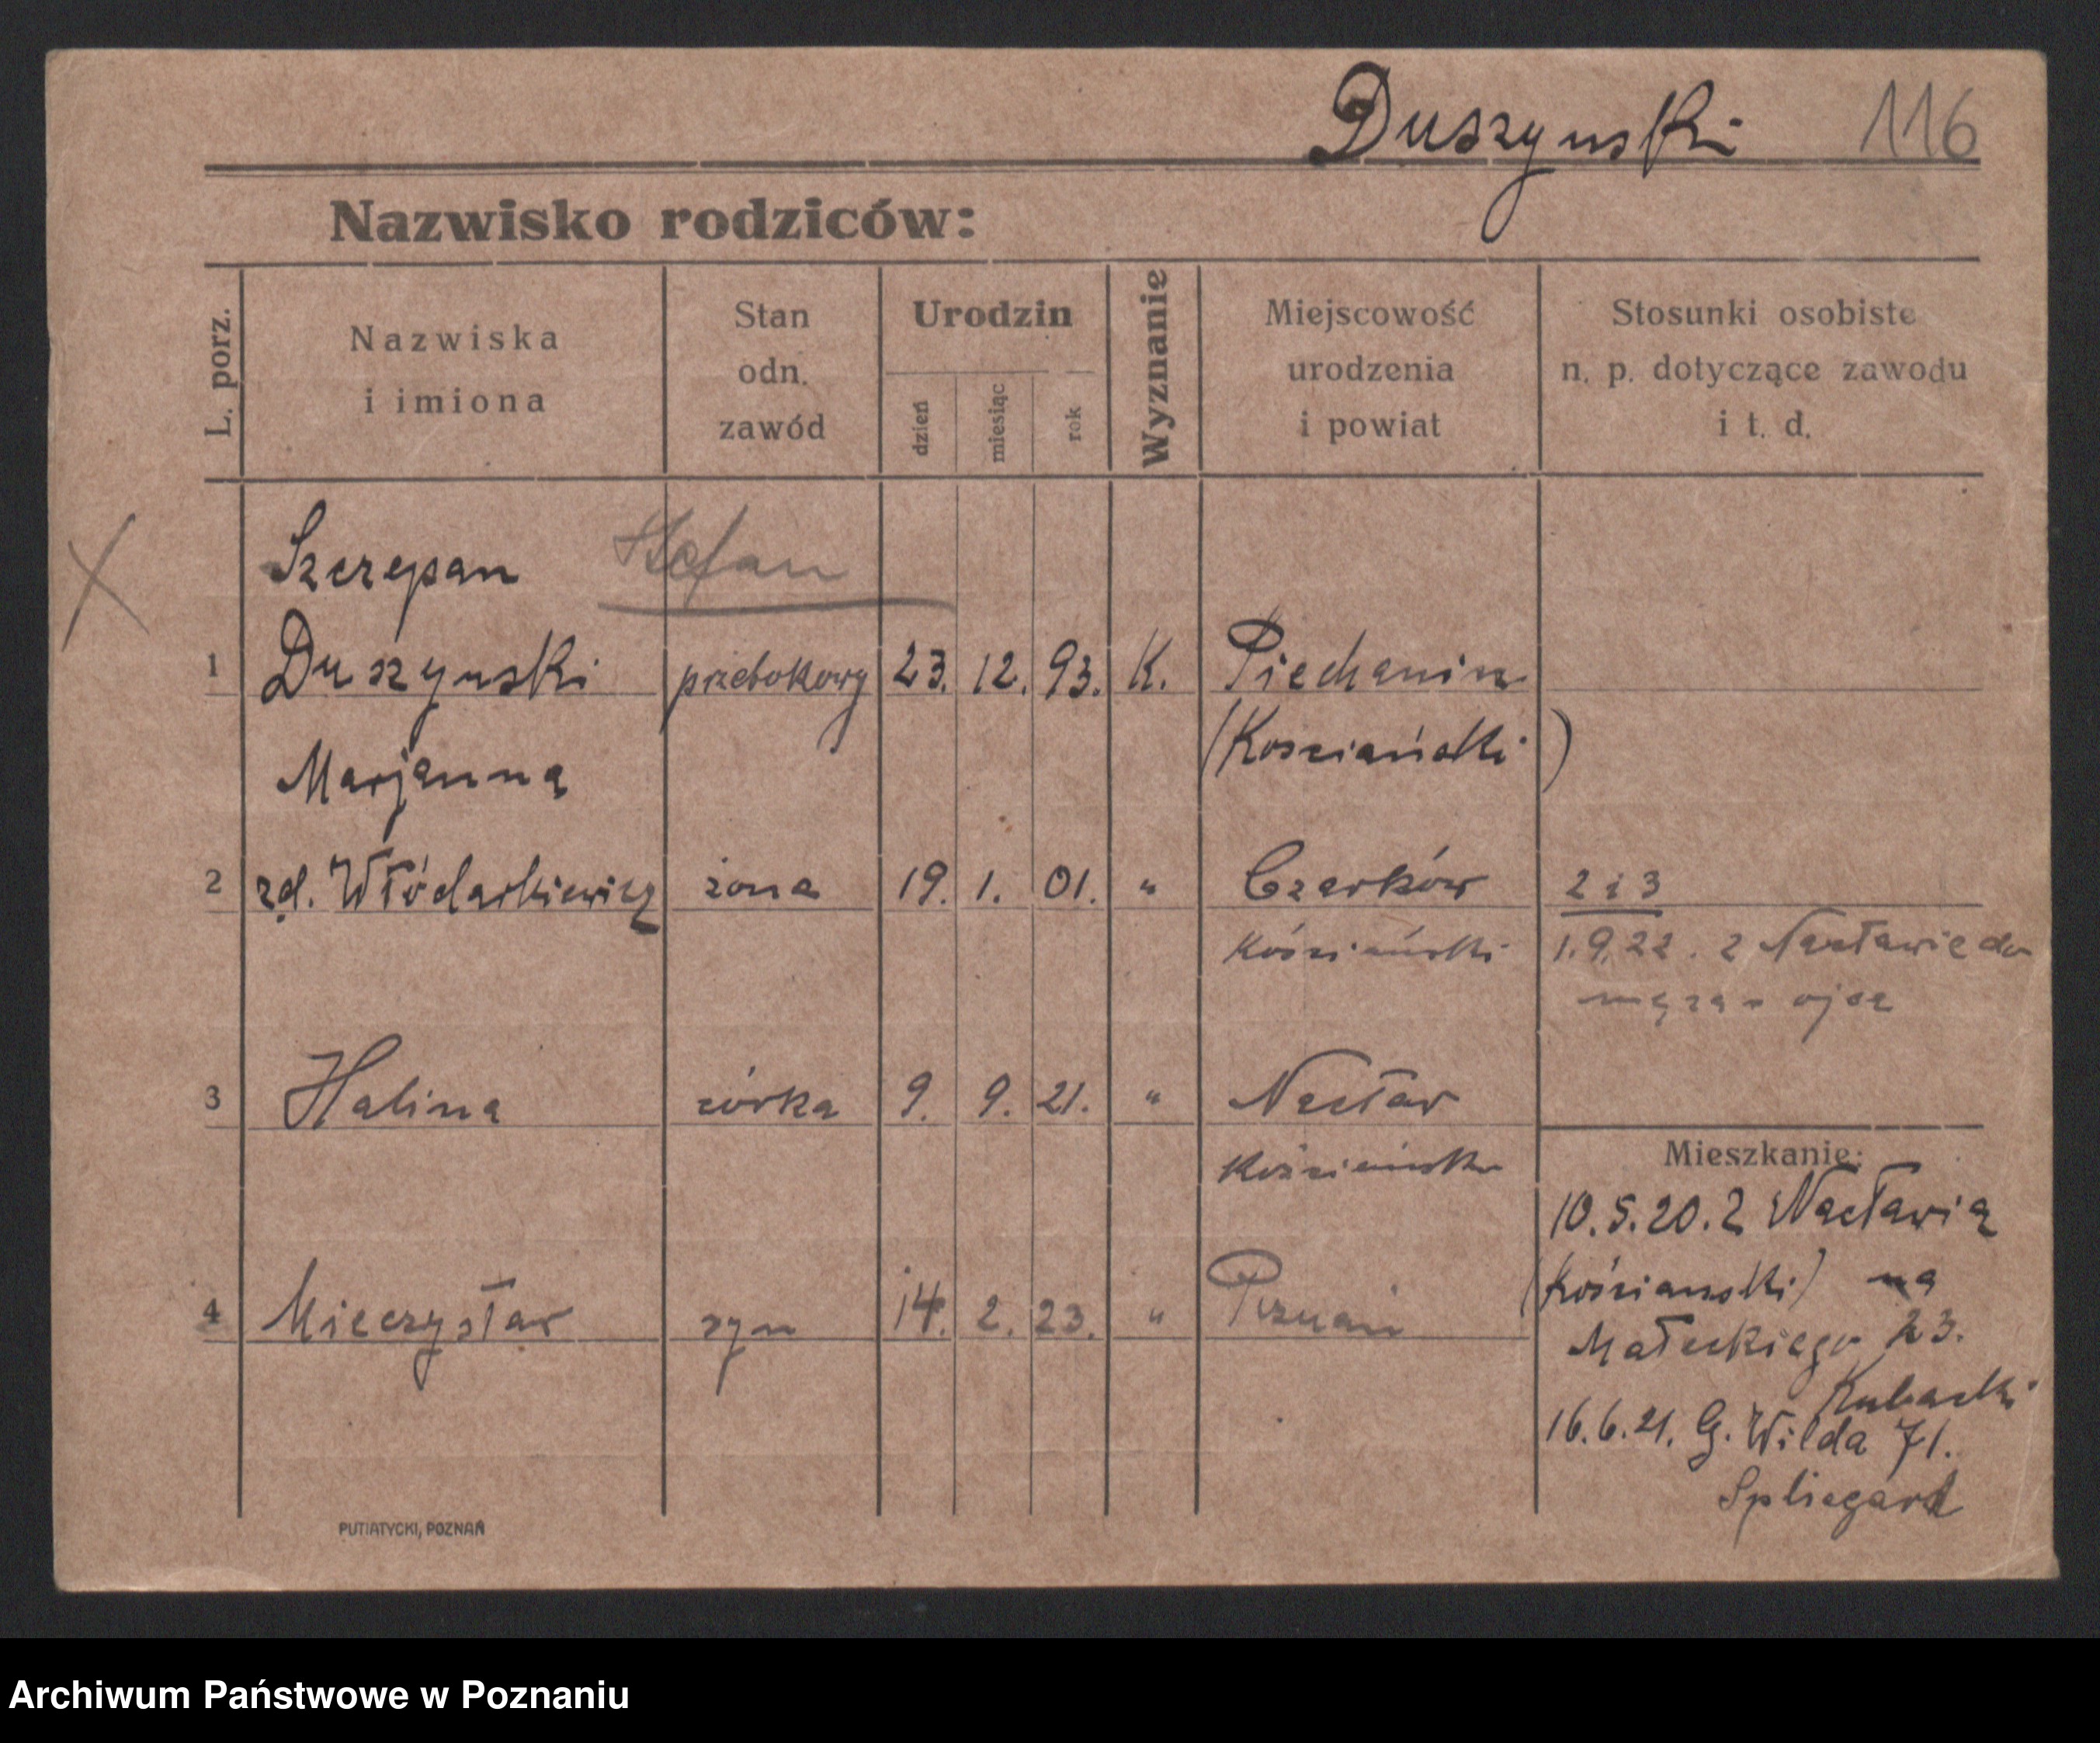 Duszynski 116
Nazwisko rodziców:
L. porz.
Nazwiska
i imiona
Stan
odn.
zawód
Urodzin
dzień
miesiąc
rok
Wyznanie
Miejscowość
urodzenia
i powiat
Stosunki osobiste
n. p. dotyczące zawodu
i t. d.
Szczepan Stefan
1 Duszynski 23. 12. 93. K. Piechanin
(Kosciański)
Marjanna
2 zd. Włódarkiewicz żona 19. 1. 01. " Czarków 2 i 3
Kościański 1.9.22. z Nacławie do
męża - ojca
3 Halina córka 9. 9. 21. " Nacław
Mieszkanie:
10.5.20. z Nacławia
(Kościanski) na
4 Mieczysław syn 14. 2. 23. " Poznań
Małeckiego 23.
Kubacki
16.6.21. G. Wilda 71.
Spliegard
PUTIATYCKI, POZNAŃ
Archiwum Państwowe w Poznaniu